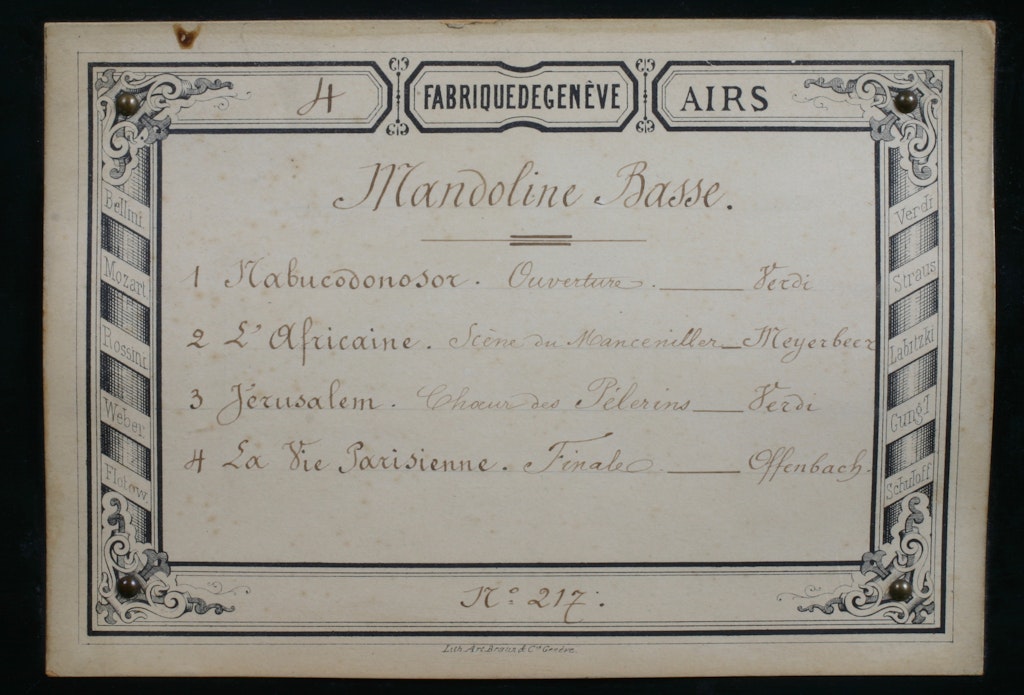 4 FABRIQUE DE GENÈVE AIRS
Mandoline Basse.
1 Nabucodonosor. Ouverture. Verdi
2 L'Africaine. Scène du Manceniller Meyerbeer
3 Jérusalem. Chœur des Pélerins Verdi
4 La Vie Parisienne. Finale Offenbach.
Nº 217.
Bellini
Mozart
Rossini
Weber
Flotow
Verdi
Straus
Labitzki
Gung'l
Schuloff
Lith. Art. Braun & Cie Genève.